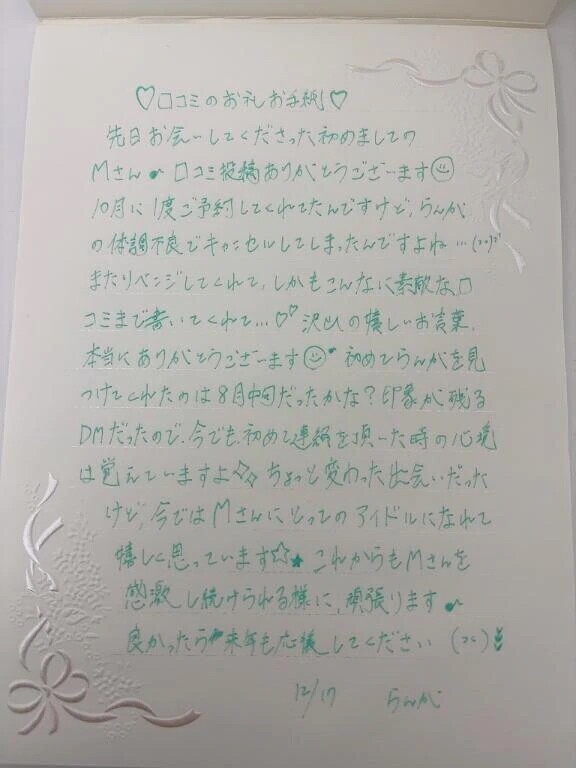 ♡口コミのお礼お手紙♡
先日お会いしてくださった初めましての
Mさん♪ 口コミ投稿ありがとうございます☺
10月に1度ご予約してくれてたんですけど、らんか
の体調不良でキャンセルしてしまったんですよね…
またリベンジしてくれて、しかもこんなに素敵な口
コミまで書いてくれて…♡♡ 沢山の嬉しいお言葉、
本当にありがとうございます☺♪ 初めてらんかを見
つけてくれたのは8月中旬だったかな？印象が残る
DMだったので、今でも初めて連絡を頂いた時の心境
は覚えていますよ✧✧ ちょっと変わった出会いだった
けど、今ではMさんにとってのアイドルになれて
嬉しく思っています☆★ これからもMさんを
感激し続けられる様に、頑張ります♪
良かったら来年も応援してください
12/17 らんか